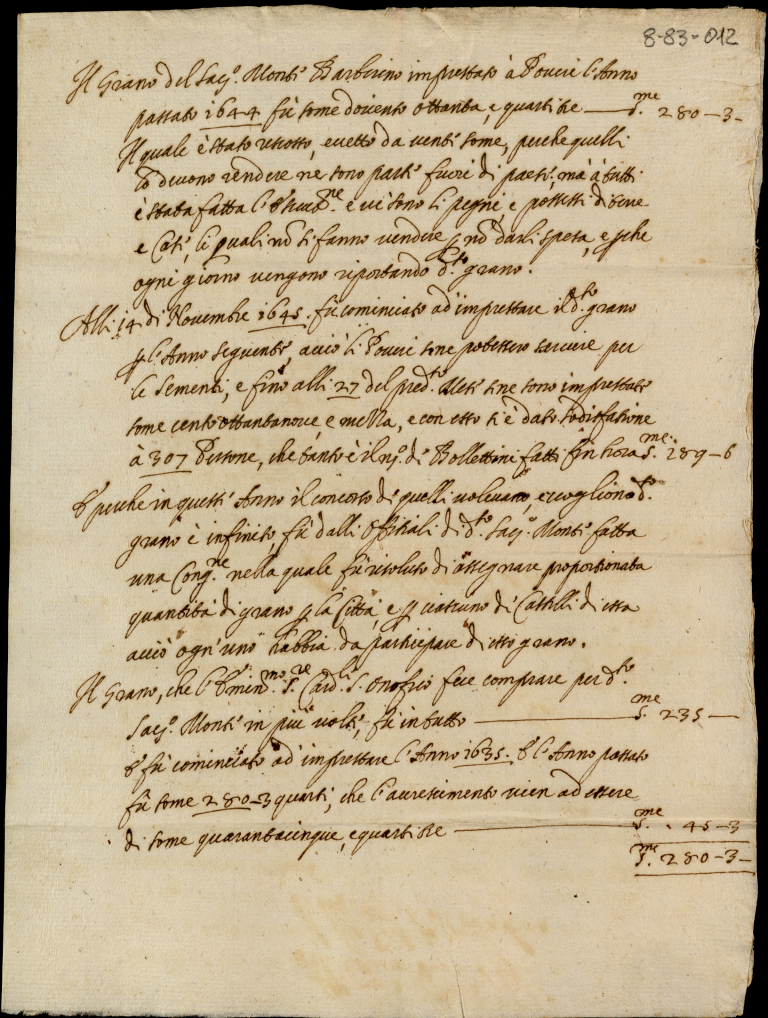 8-83-012
Il Grano del Sac.º Monte Barberino imprestato à Poveri l'Anno
passato 1644 fù some ducento ottanta, e quarti tre — S.me 280-3-
Il quale è stato riscosso, eccetto da venti some, perche quelli
lo devono rendere ne sono parte fuori di paese, mà à tutti
è stata fatta l' e vi sono li pegni, e possessi di terre
e Case, li quali nō si fanno vendere p nō darli spesa, e pche
ogni giorno vengono riportando d.to grano.
Alli 14 di Novembre 1645. fù cominciato ad imprestare il d.to grano
p l'Anno seguente, acciò li Poveri sene potessero servire per
le sementi, e fino alli 27 del pred.to Mese sene sono imprestate
some cento ottantanove, e mezza, e con esso si è dato sodisfatione
à 307 Persone, che tanto è il nº. de Bollettini fatti fin hora S.me 189-6
E perche in questo Anno il concorso di quelli volevano, e vogliono d.to
grano è infinito, fù dalli Offitiali di d.to Sac.º Monte fatta
una Cong.ne nella quale fù risoluto di assegnare proportionata
quantità di grano p la Città, e p ciascuno de Castelli di essa
acciò ogn'uno habbia da participare di esso grano.
Il Grano, che l'Emin.mo S.re Card.le S. Onofrio fece comprare per d.to
Sac.º Monte in più volte, fù in tutto — S.me 235 —
E fù cominciato ad imprestare l'Anno 1635. E l'Anno passato
fù some 280-3 quarti, che l'accrescimento vien ad essere
di some quarantacinque, e quarti tre — S.me 45-3
S.me 280-3-